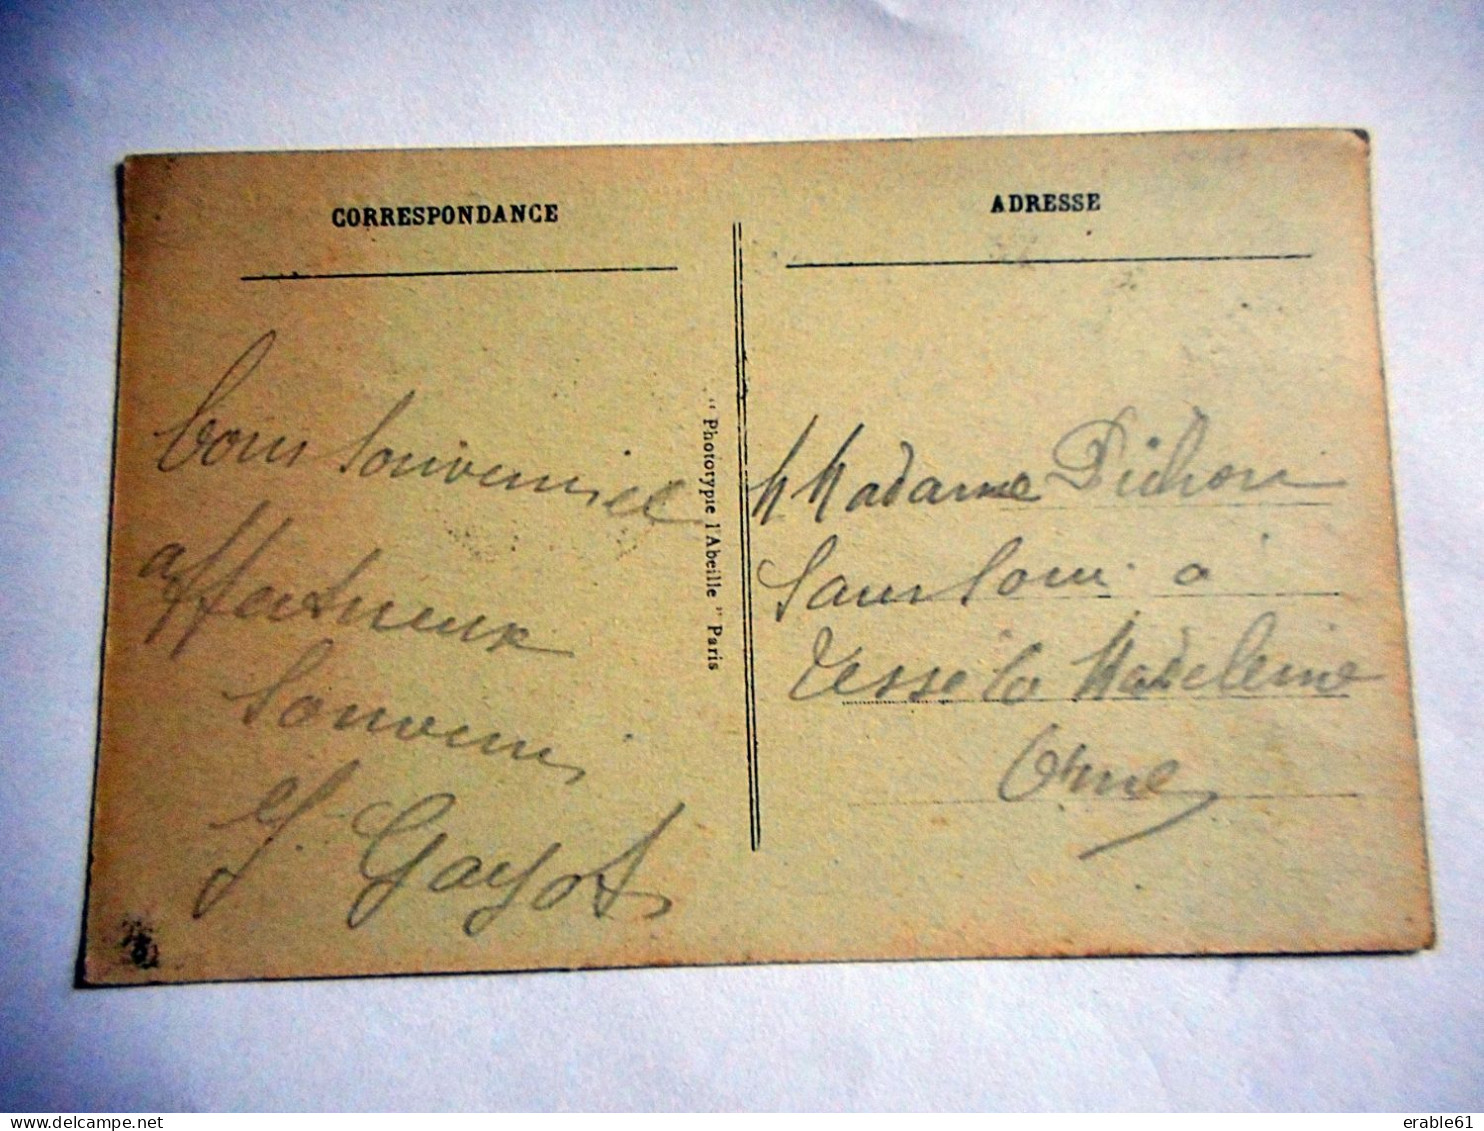 CORRESPONDANCE
bons Souvenir et
affectueux
Souvenir
G. Gayot
" Phototypie l'Abeille " Paris
ADRESSE
M Madame Pichon
Sans Souci à
Tessé la Madeleine
Orne
erable61